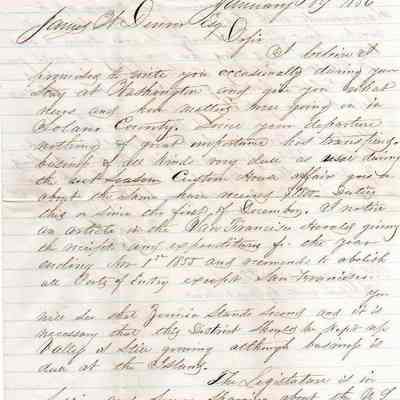 January 19 1856
James W Denver Esq
D Sir
I believe I
promised to write you occasionally during your
stay at Washington and give you what
news and how matters were going on in
Solano County. Since your departure
nothing of great importance has transpired.
business of all kinds very dull as usual during
the wet season Custom House affairs goes on
about the same have received $ Duties
this since the first of December. I notice
an article in the San Francisco Herald giving
the receipts and expenditures for the year
ending Nov 1st 1855 and recommends to abolish
all Ports of Entry except San Francisco.
You
will see that Benicia Stands Second and it is
necessary that this District should be kept up
Vallejo is Still growing although business is
dull at the Island.
The Legislature is in
about the U.S.